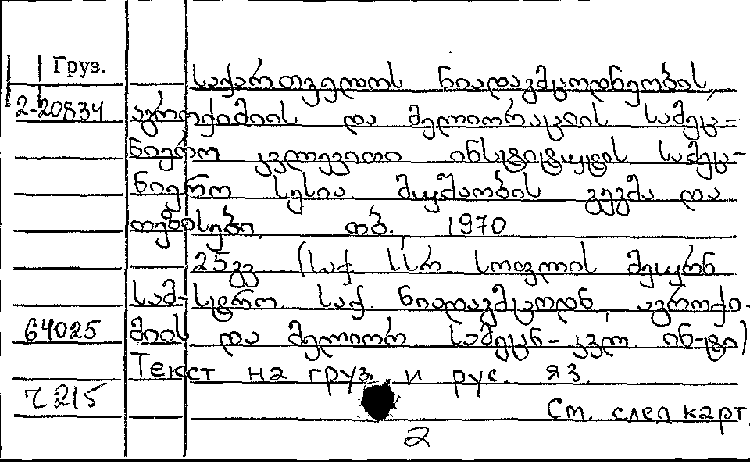 Груз.
საქართველოს ნიადაგმცოდნეობის,
2-20834 აგროქიმიის და მელიორაციის სამეც-
ნიერო კვლევითი ინსტიტუტის სამეც-
ნიერო სესია მუშაობის გეგმა და
თეზისები. თბ. 1970
25გვ (საქ. სსრ სოფლის მეურნ.
სამ-სტრო. საქ. ნიადაგმცოდნ., აგროქი-
64025 მიის და მელიორ. სამეცნ-კვლ. ინ-ტი)
Текст на груз. и рус. яз.
215
См. след карт.
2